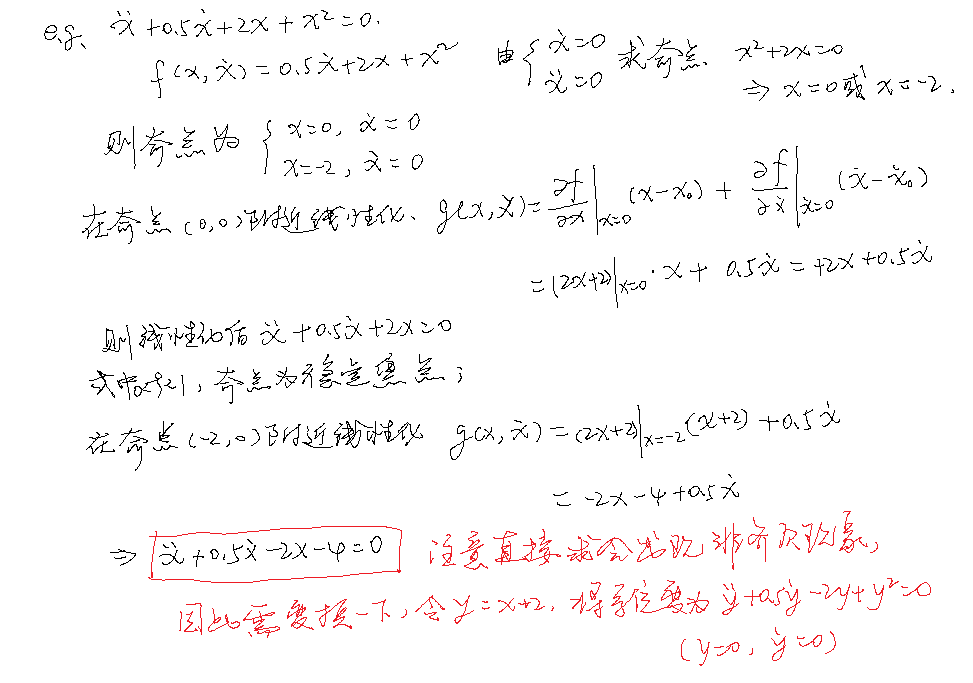 e.g. ẍ+0.5ẋ+2x+x²=0.
f(x,ẋ)=0.5ẋ+2x+x² 由{ẋ=0 ẍ=0 求奇点 x²+2x=0
⇒ x=0或x=-2.
则奇点为 {x=0, ẋ=0
x=-2, ẋ=0
在奇点(0,0)附近线性化、g(x,ẋ)=∂f/∂x|x=0 (x-x₀) + ∂f/∂ẋ|ẋ=0 (ẋ-ẋ₀)
=(2x+2)|x=0·x+0.5ẋ=+2x+0.5ẋ
则线性化后 ẍ+0.5ẋ+2x=0
式中0<ξ<1, 奇点为稳定焦点;
在奇点(-2,0)附近线性化 g(x,ẋ)=(2x+2)|x=-2 (x+2)+0.5ẋ
=-2x-4+0.5ẋ
⇒ ẍ+0.5ẋ-2x-4=0 注意直接求会出现非齐次现象,
因此需要换一下,令y=x+2, 得 变为 ÿ+0.5ẏ-2y+y²=0
(y=0, ẏ=0)